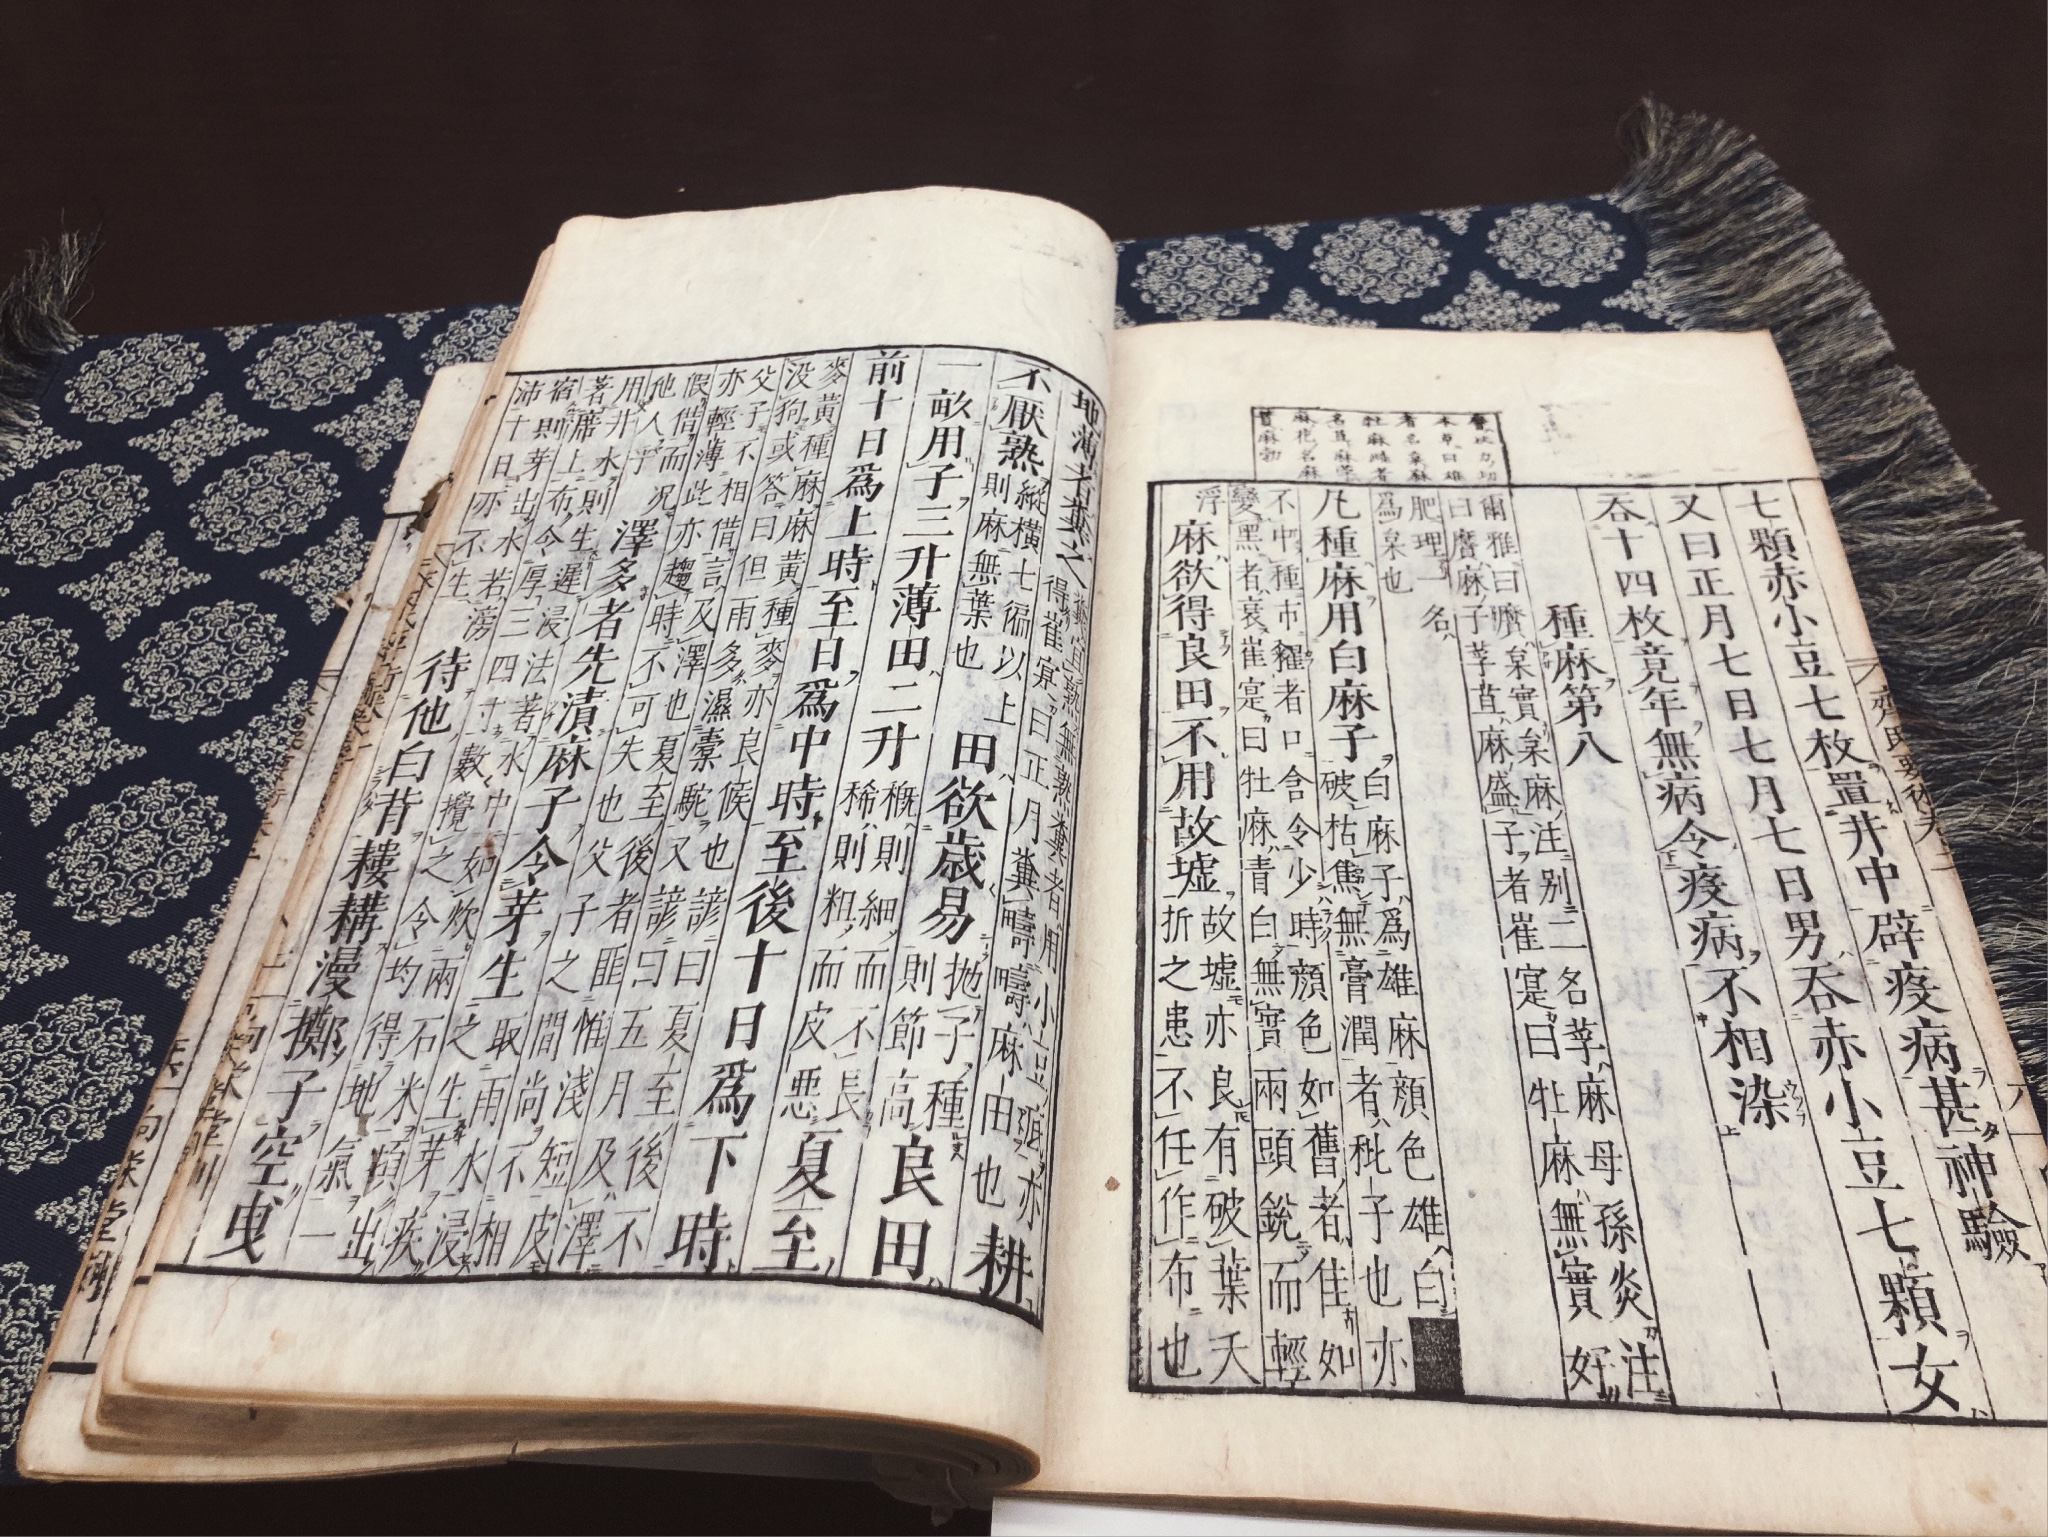 七顆赤小豆七枚置井中辟疫病甚神驗
又曰正月七日七月七日男吞赤小豆七顆女
吞十四枚竟年無病令疫病不相染
種麻第八
爾雅曰黂枲實枲麻注別二名莩麻母孫炎注
曰黂麻子莩苴麻盛子者崔寔曰牡麻無實好
肥理一名
爲枲也
凡種麻用白麻子
白麻子爲雄麻顔色雄白
破枯焦無膏潤者秕子也亦
不中種市糴者口含令少時顔色如舊者佳如
變黑者裛崔寔曰牡麻青白無實兩頭銳而輕
浮
麻欲得良田不用故墟
故墟亦良有破葉夭
折之患不任作布也
地薄者糞之
糞宜熟無熟糞者用小豆底亦
得崔寔曰正月糞疇疇麻田也
耕
不厭熟
縱橫七徧以上
則麻無葉也
田欲歲易
抛子種
則節高
良田
一畝用子三升薄田二升
穊則細而不長
稀則粗而皮悪
夏至
前十日爲上時至日爲中時至後十日爲下時
麥黃種麻麻黃種麥亦良候也諺曰夏至後不
没狗或答曰但雨多濕橐駝又諺曰五月及澤
父子不相借言及澤也夏至後者匪惟淺短皮
亦輕薄此亦趨時不可失也父子之間尚不相
假借而况
他人乎
澤多者先漬麻子令芽生
取雨水浸
之生芽疾
用井水則生遲浸法著水中如炊兩石米頃出
著席上布令厚三四寸數攪之令均得地氣一
宿則芽出水若滂
沛十日亦不生
待他白背耬耩漫擲子空曳